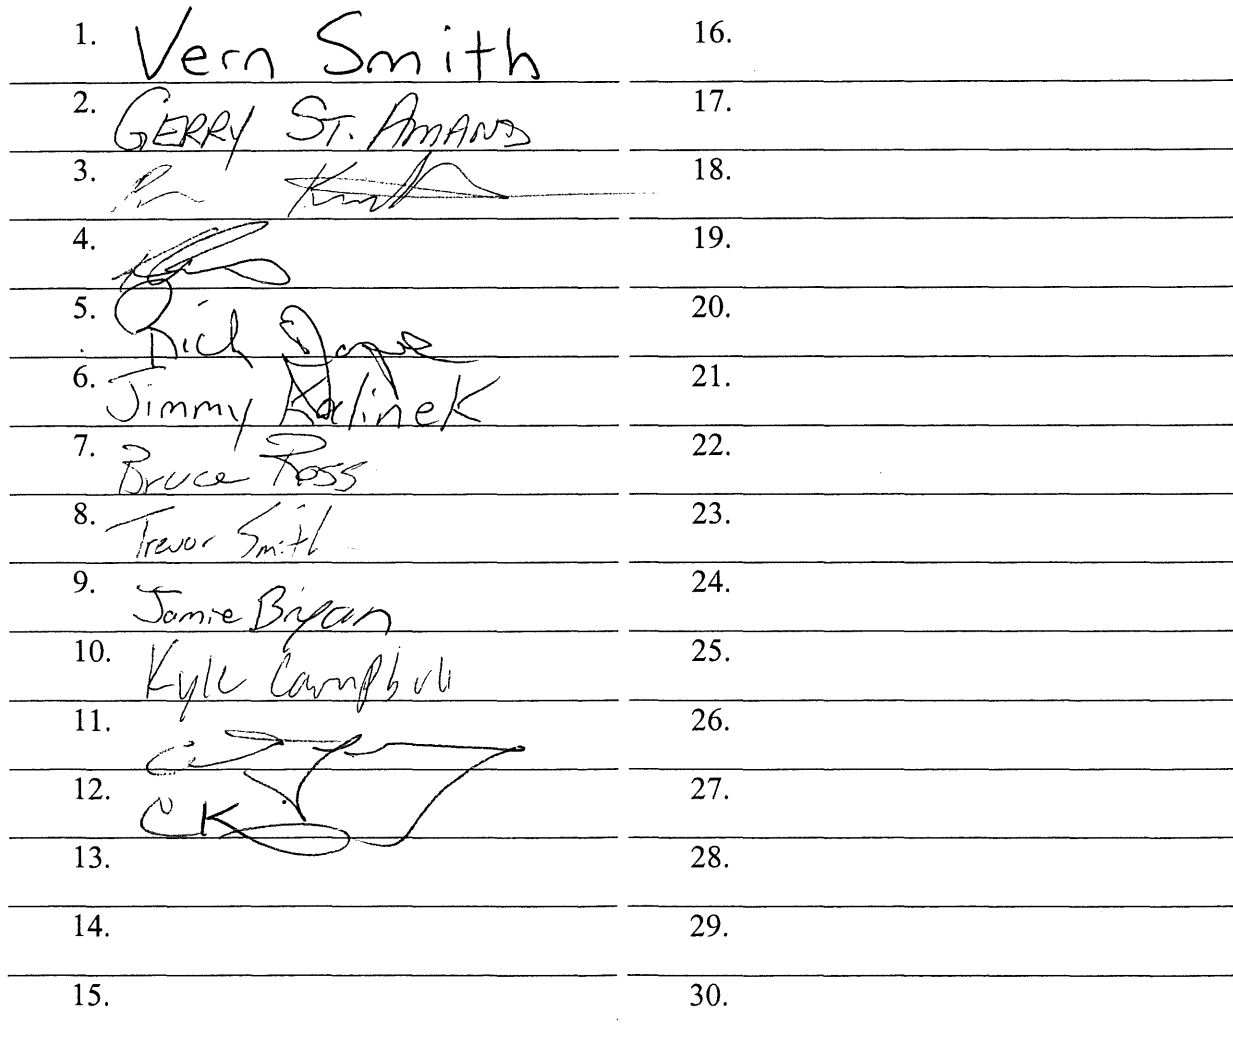 1. Vern Smith
2. GERRY ST. AMAND
3.
4.
5. Rich
6. Jimmy Kalinek
7. Bruce Ross
8. Trevor Smith
9. Jamie Bryan
10. Kyle Campbell
11.
12. CK
13.
14.
15.
16.
17.
18.
19.
20.
21.
22.
23.
24.
25.
26.
27.
28.
29.
30.